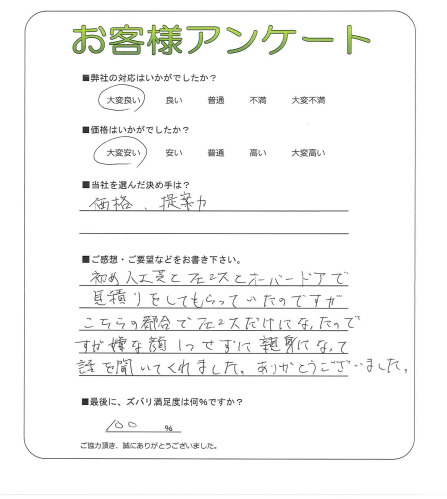 お客様アンケート
■弊社の対応はいかがでしたか？
大変良い 良い 普通 不満 大変不満
■価格はいかがでしたか？
大変安い 安い 普通 高い 大変高い
■当社を選んだ決め手は？
価格、提案力
■ご感想・ご要望などをお書き下さい。
初め人工芝とフェンスとオーバードアで
見積りをしてもらっていたのですが
こちらの都合でフェンスだけになったので
すが嫌な顔1つせずに親身になって
話を聞いてくれました。ありがとうございました。
■最後に、ズバリ満足度は何％ですか？
100 ％
ご協力頂き、誠にありがとうございました。